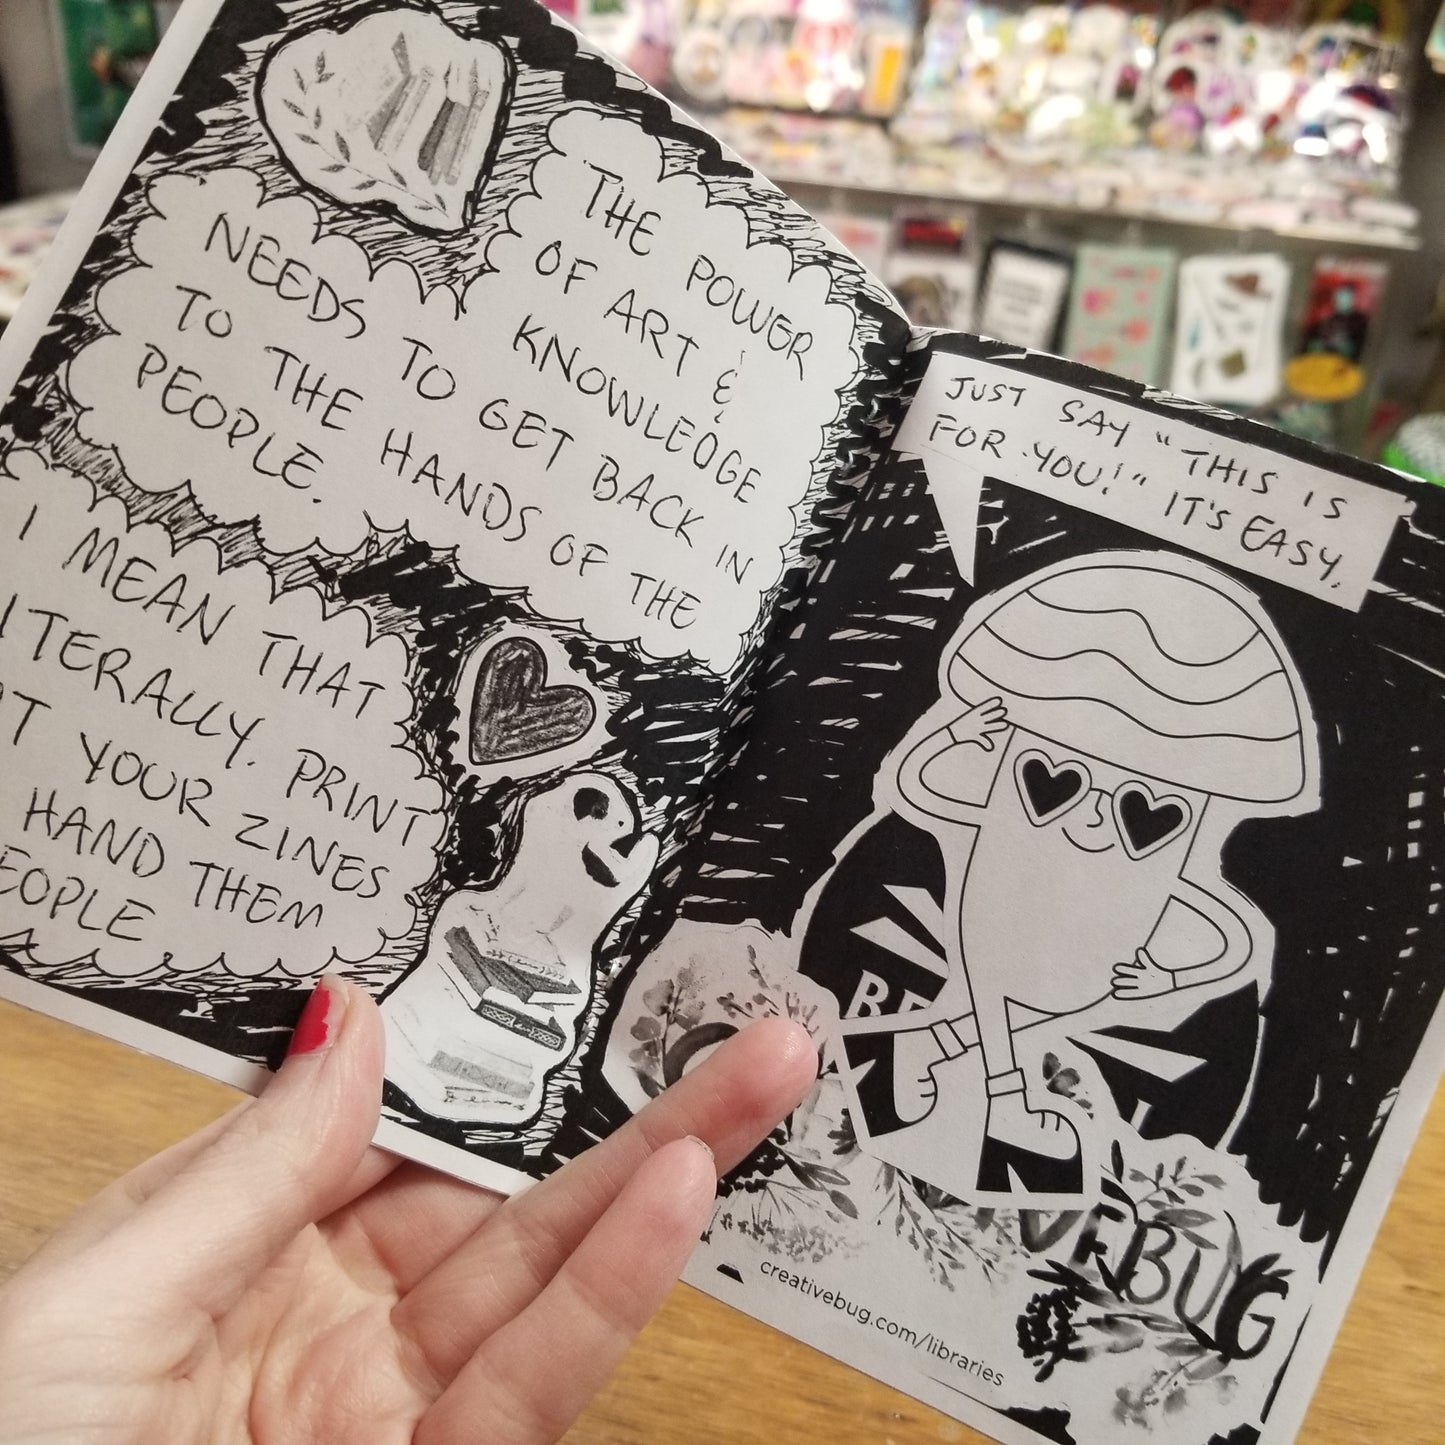 THE POWER
OF ART &
KNOWLEDGE
NEEDS TO GET BACK IN
TO THE HANDS OF THE
PEOPLE.
I MEAN THAT
ITERALLY. PRINT
T YOUR ZINES
HAND THEM
EOPLE
JUST SAY "THIS IS
FOR YOU!" IT'S EASY.
BE
VEBUG
creativebug.com/libraries